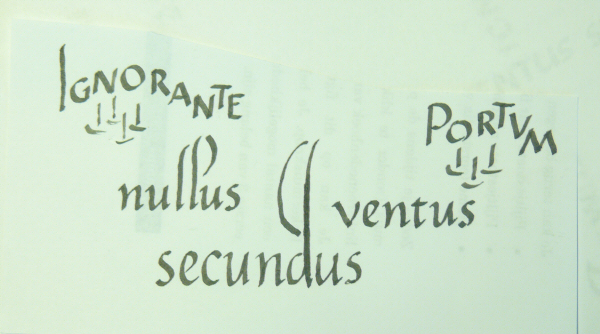 IGNORANTE
PORTVM
nullus ventus
secundus